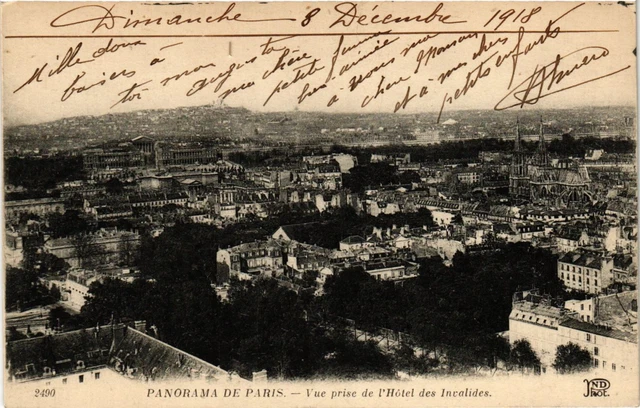 Dimanche 8 Décembre 1918
Mille doux
baisers à
toi mon
Augusta
ma chère
petite femme
bien aimée
à vous ma
chère
et à mes chers
petits enfants
2490 PANORAMA DE PARIS. — Vue prise de l'Hôtel des Invalides.
ND
PHOT.